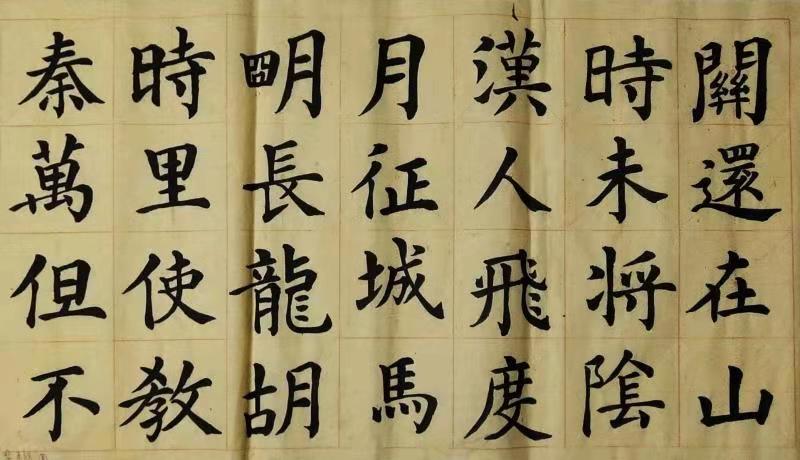 秦時朙月漢時關
萬里長征人未還
但使龍城飛将在
不教胡馬度陰山